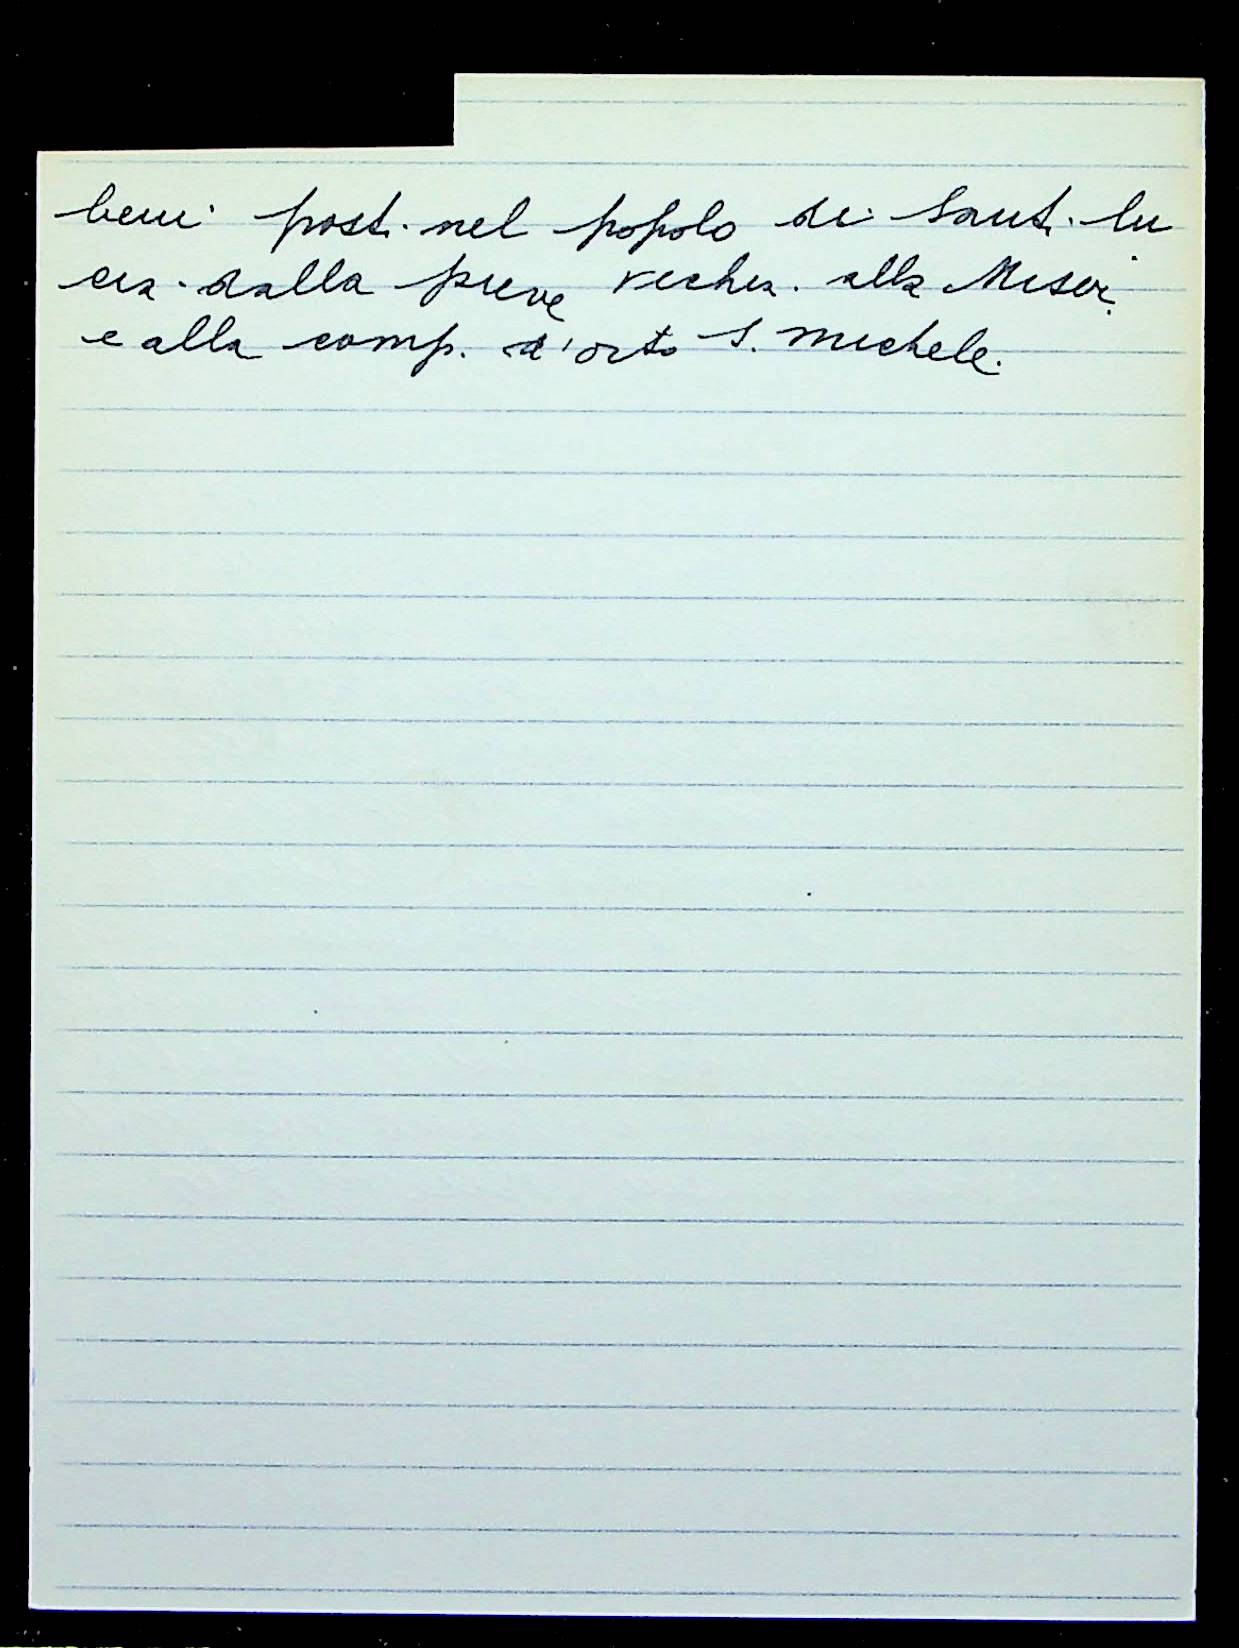 beni posti nel popolo di Santa Lu
cia dalla pieve vechia alla Miser.
e alla comp. d'orto S. Michele.